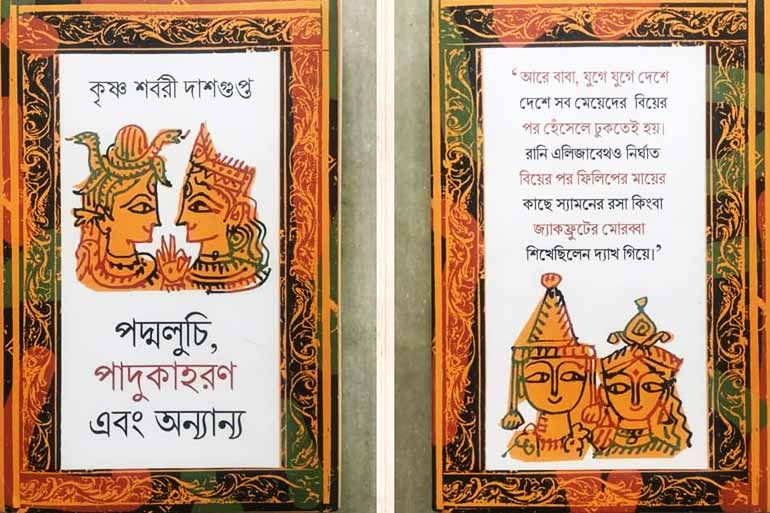 কৃষ্ণ শর্বরী দাশগুপ্ত
পদ্মলুচি,
পাদুকাহরণ
এবং অন্যান্য
‘আরে বাবা, যুগে যুগে দেশে
দেশে সব মেয়েদের বিয়ের
পর হেঁসেলে ঢুকতেই হয়।
রানি এলিজাবেথও নির্ঘাত
বিয়ের পর ফিলিপের মায়ের
কাছে স্যামনের রসা কিংবা
জ্যাকফ্রুটের মোরব্বা
শিখেছিলেন দ্যাখ গিয়ে।’